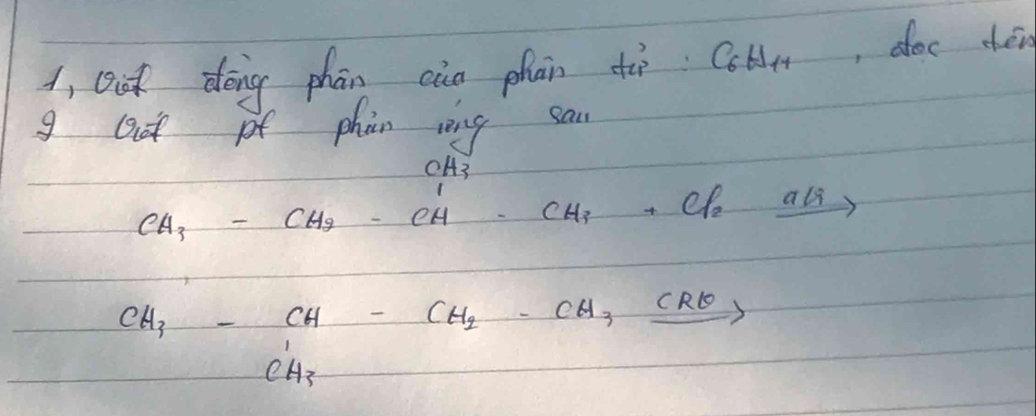 1, Viết đồng phân của phân tử : C6H14 , đọc tên
2 Viết pt phản ứng sau
CH3
CH3 - CH2 - CH - CH3 + Cl2 →
CH3 - CH - CH2 - CH3 →
CH3